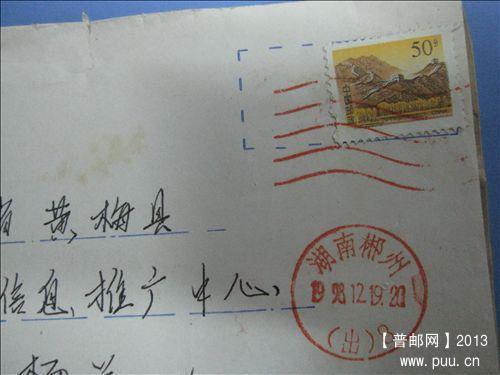 50分
省黄梅县
信息推广中心
湖南郴州
1998.12.19.20
(出)
【普邮网】2013
www.puu.cn